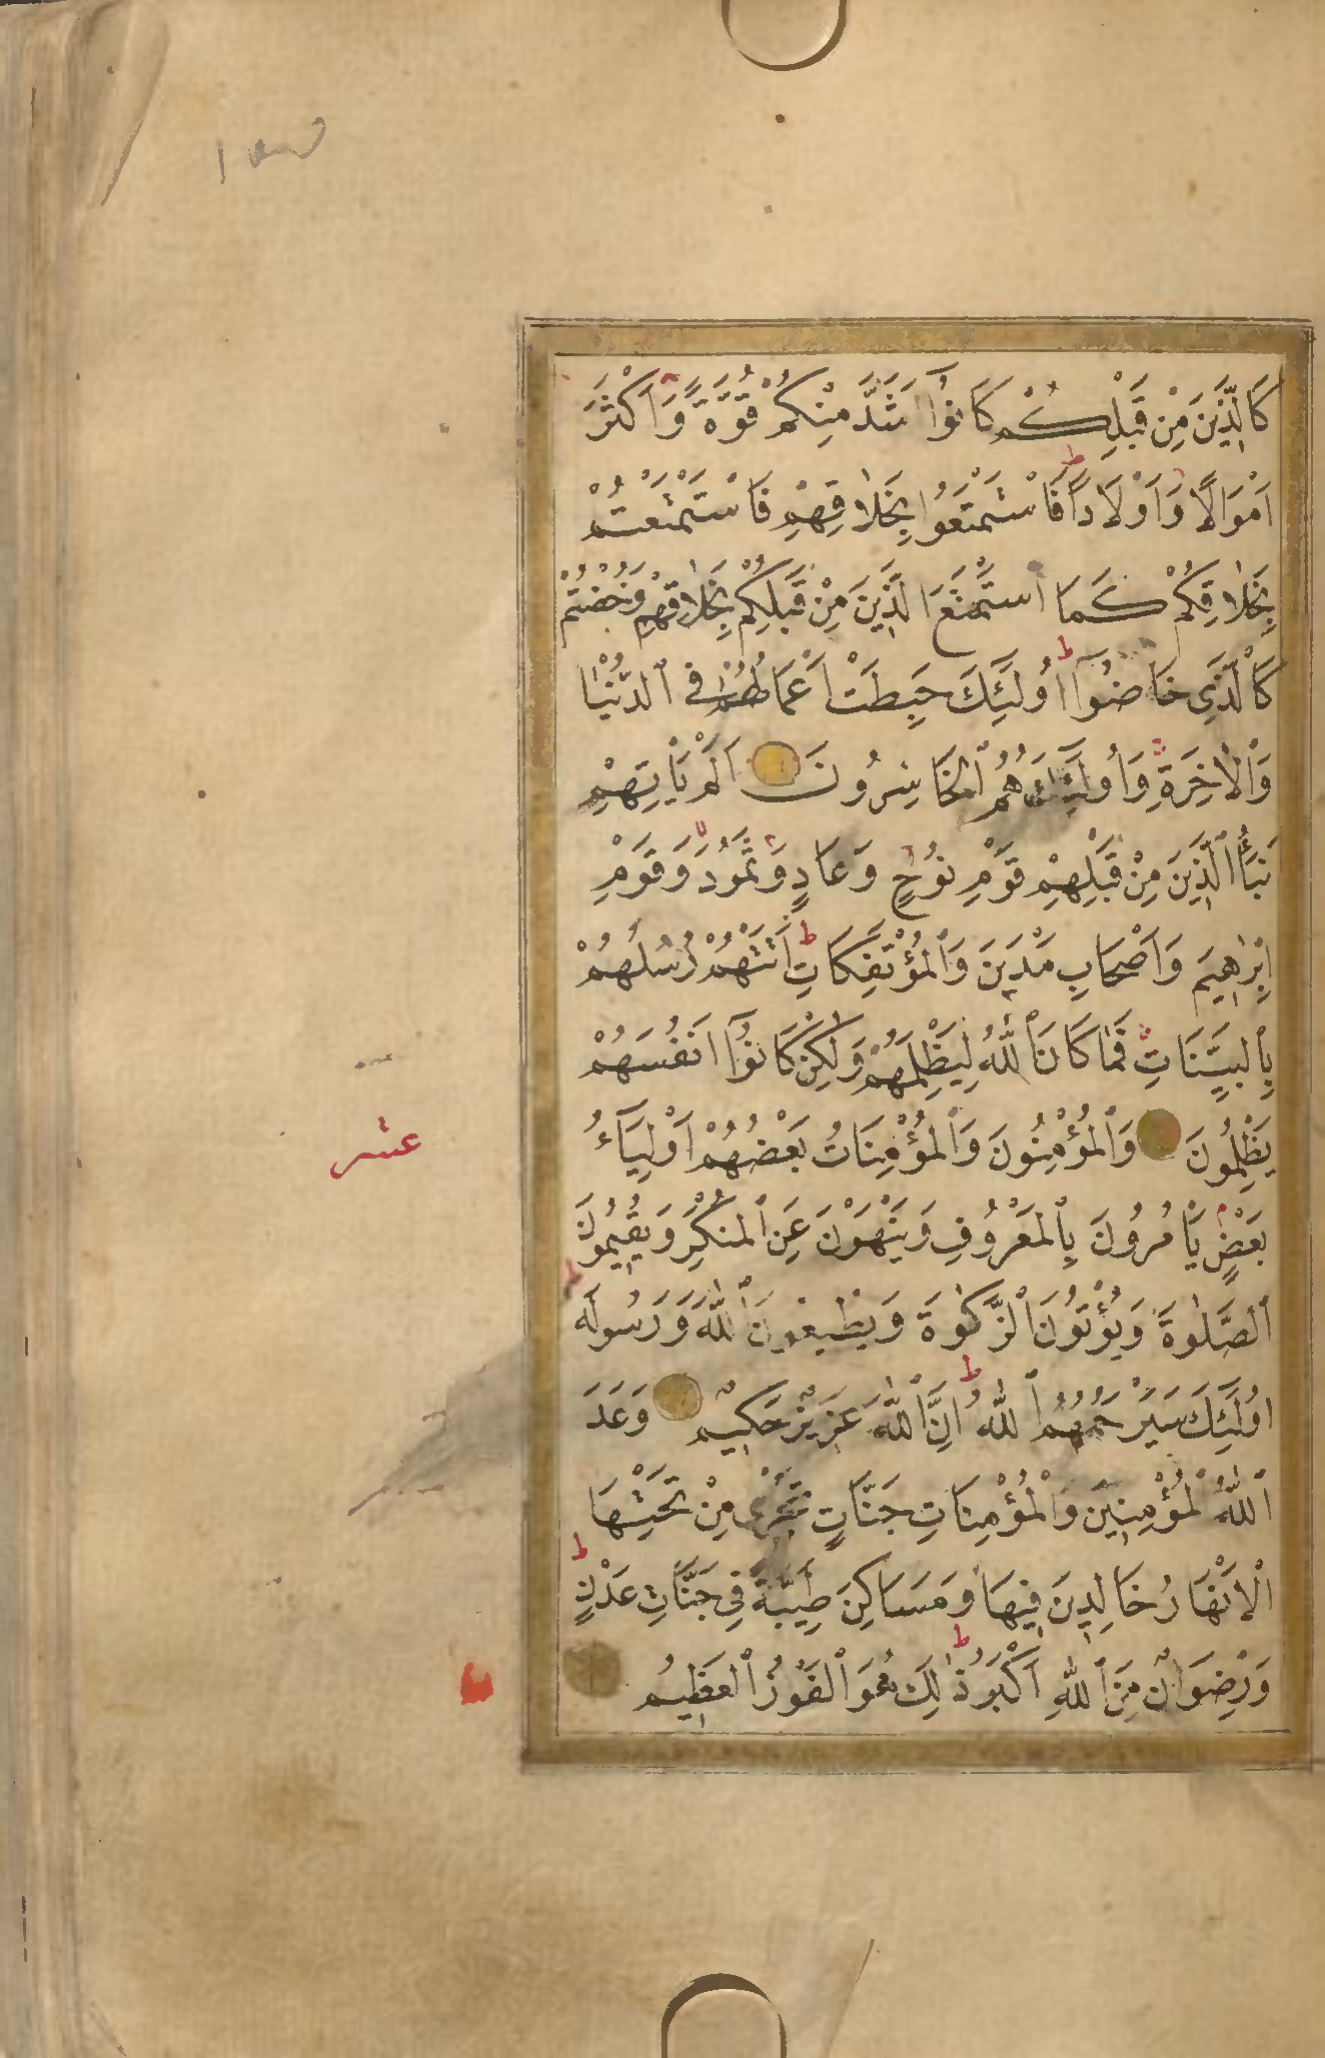 كَالَّذِينَ مِنْ قَبْلِكُمْ كَانُوٓا اَشَدَّ مِنْكُمْ قُوَّةً وَاَكْثَرَ
اَمْوَالًا وَاَوْلَادًا فَاسْتَمْتَعُوا بِخَلَاقِهِمْ فَاسْتَمْتَعْتُمْ
بِخَلَاقِكُمْ كَمَا اسْتَمْتَعَ الَّذِينَ مِنْ قَبْلِكُمْ بِخَلَاقِهِمْ وَخُضْتُمْ
كَالَّذِى خَاضُوٓا ط اُولَٓئِكَ حَبِطَتْ اَعْمَالُهُمْ فِى ٱلدُّنْيَا
وَٱلْاٰخِرَةِ وَاُولَٓئِكَ هُمُ ٱلْخَاسِرُونَ اَلَمْ يَأْتِهِمْ
نَبَأُ ٱلَّذِينَ مِنْ قَبْلِهِمْ قَوْمِ نُوحٍ وَعَادٍ وَثَمُودَ وَقَوْمِ
اِبْرٰهِيمَ وَاَصْحَابِ مَدْيَنَ وَٱلْمُؤْتَفِكَاتِ ط اَتَتْهُمْ رُسُلُهُمْ
بِٱلْبَيِّنَاتِ فَمَا كَانَ ٱللّٰهُ لِيَظْلِمَهُمْ وَلٰكِنْ كَانُوٓا اَنْفُسَهُمْ
يَظْلِمُونَ وَٱلْمُؤْمِنُونَ وَٱلْمُؤْمِنَاتُ بَعْضُهُمْ اَوْلِيَآءُ
عشر
بَعْضٍ يَأْمُرُونَ بِٱلْمَعْرُوفِ وَيَنْهَوْنَ عَنِ ٱلْمُنْكَرِ وَيُقِيمُونَ
ٱلصَّلٰوةَ وَيُؤْتُونَ ٱلزَّكٰوةَ وَيُطِيعُونَ ٱللّٰهَ وَرَسُولَهُ ط
اُولَٓئِكَ سَيَرْحَمُهُمُ ٱللّٰهُ ط اِنَّ ٱللّٰهَ عَزِيزٌ حَكِيمٌ وَعَدَ
ٱللّٰهُ ٱلْمُؤْمِنِينَ وَٱلْمُؤْمِنَاتِ جَنَّاتٍ تَجْرِى مِنْ تَحْتِهَا
ٱلْاَنْهَارُ خَالِدِينَ فِيهَا وَمَسَاكِنَ طَيِّبَةً فِى جَنَّاتِ عَدْنٍ ط
وَرِضْوَانٌ مِنَ ٱللّٰهِ اَكْبَرُ ط ذٰلِكَ هُوَ ٱلْفَوْزُ ٱلْعَظِيمُ